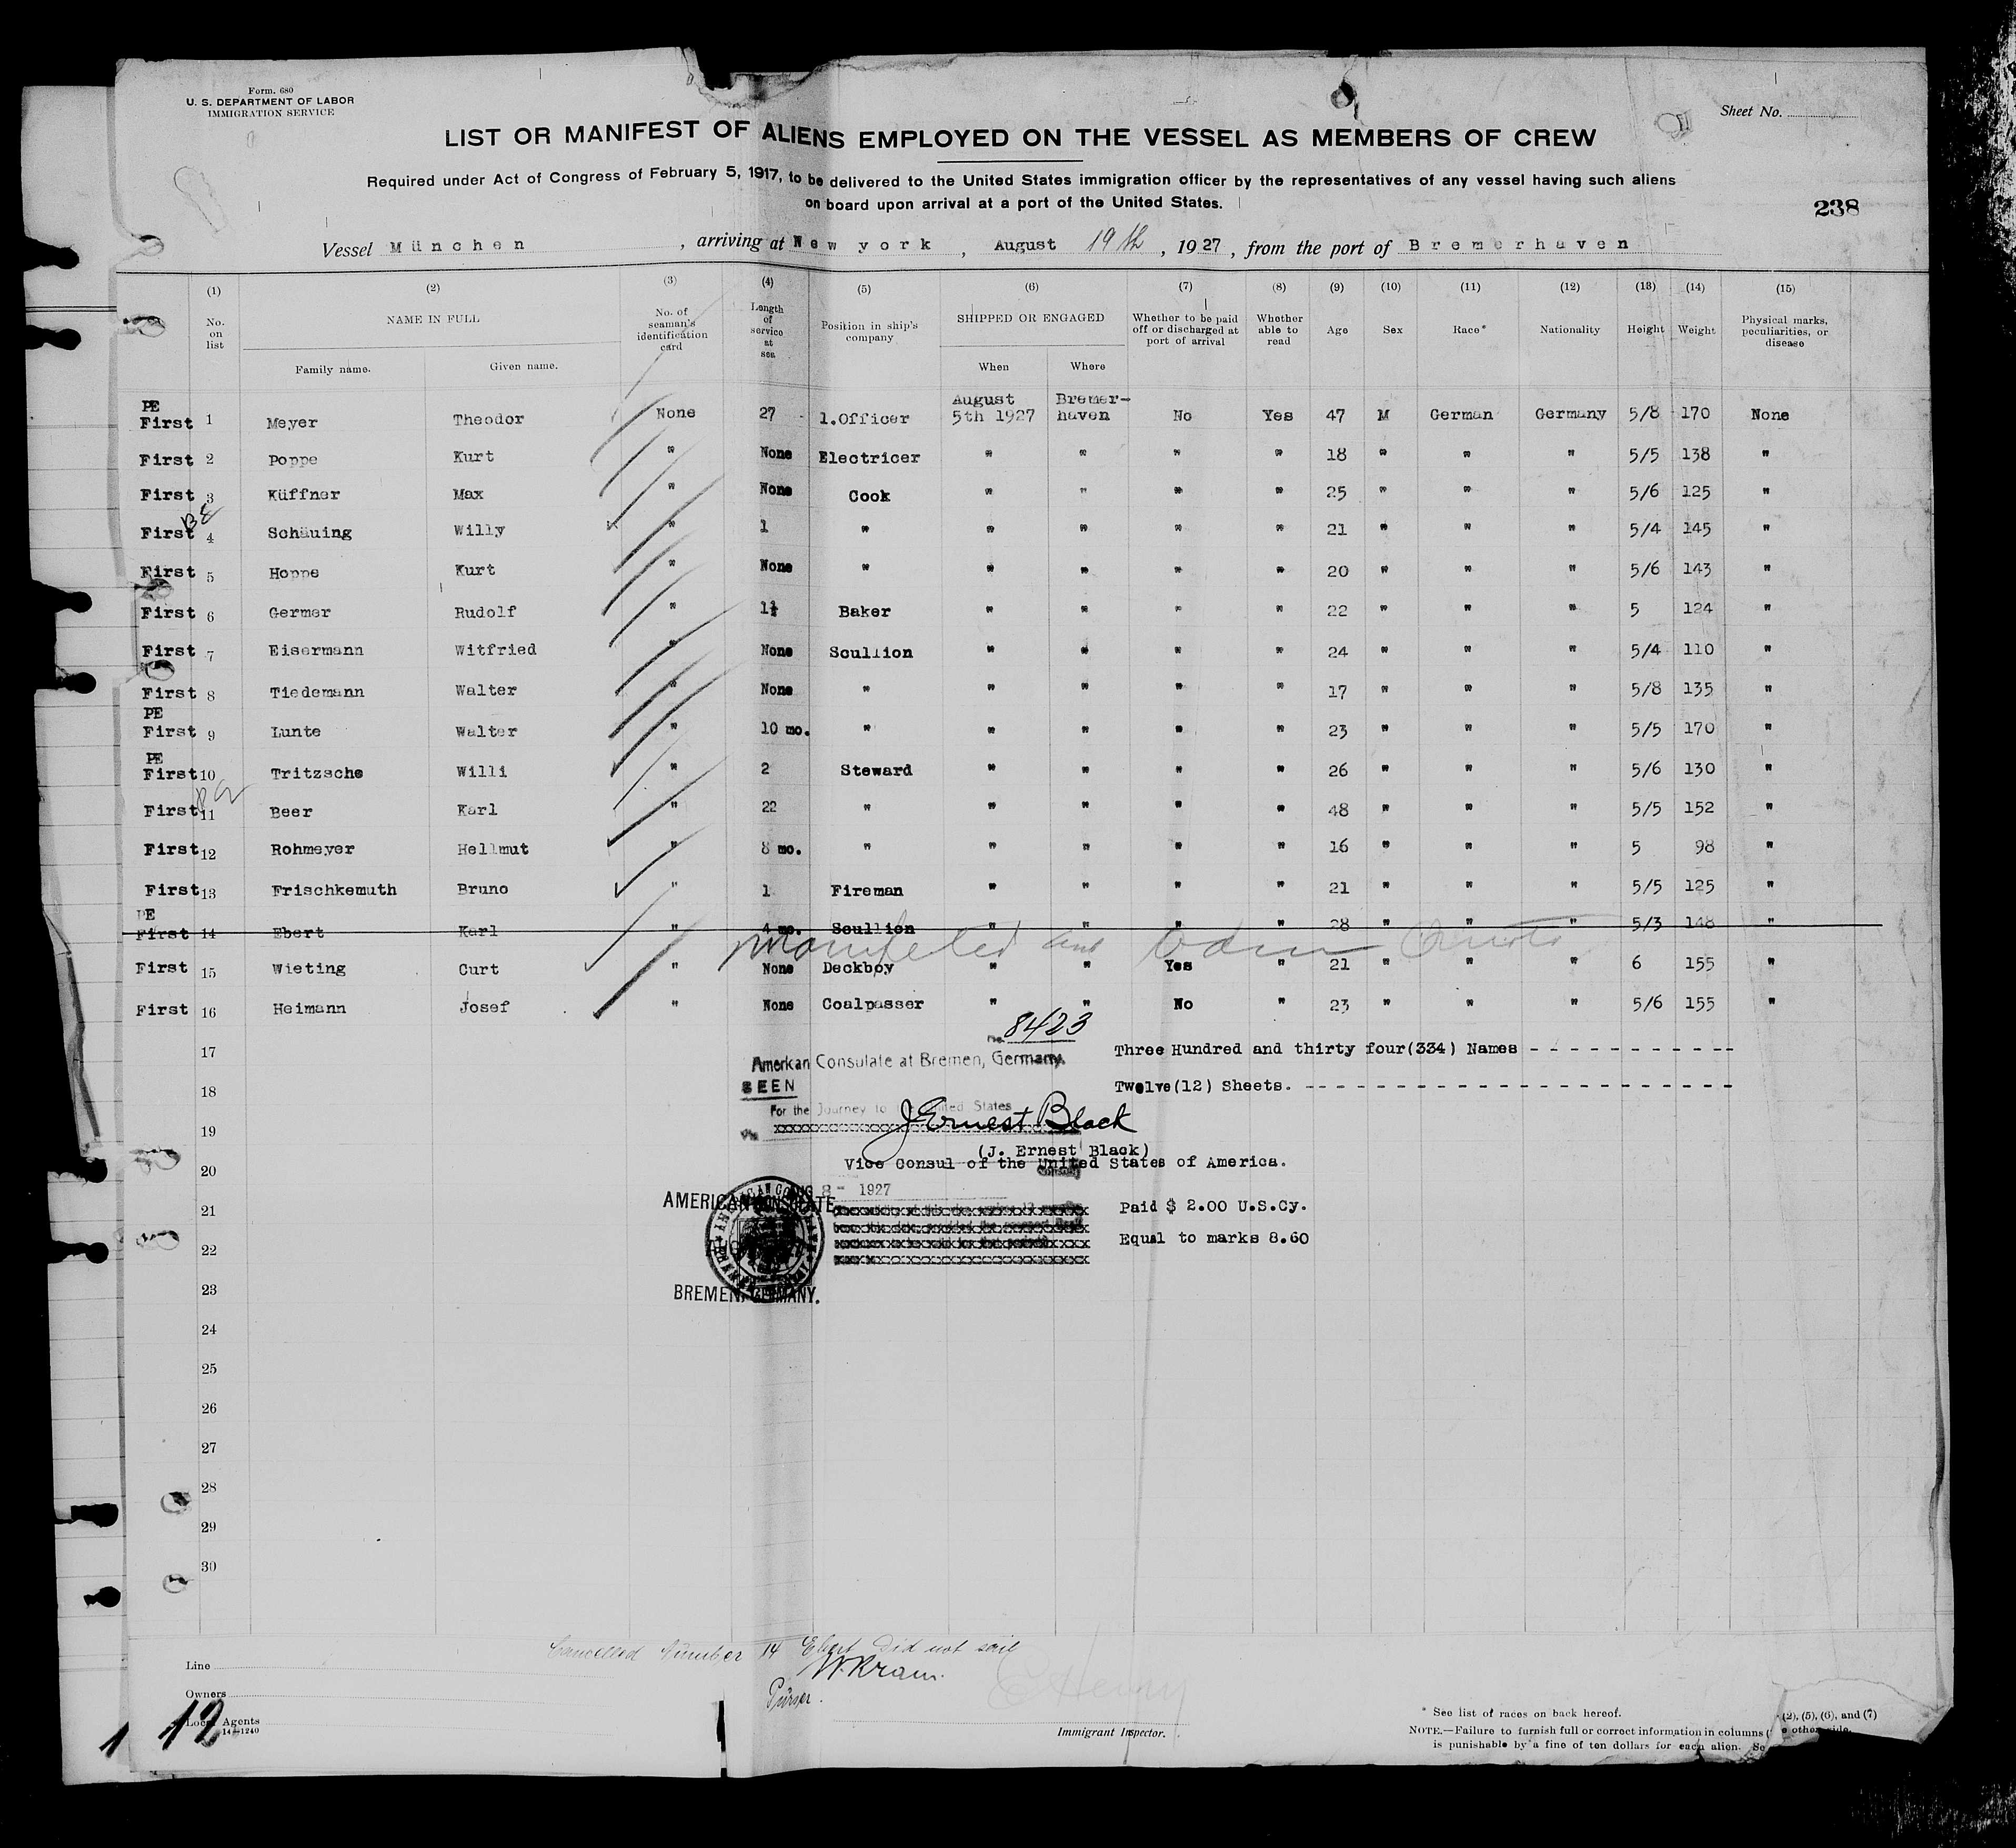 Form. 680
U. S. DEPARTMENT OF LABOR
IMMIGRATION SERVICE
Sheet No.
LIST OR MANIFEST OF ALIENS EMPLOYED ON THE VESSEL AS MEMBERS OF CREW
Required under Act of Congress of February 5, 1917, to be delivered to the United States immigration officer by the representatives of any vessel having such aliens
on board upon arrival at a port of the United States.
238
Vessel München, arriving at New york, August 19th, 1927, from the port of Bremerhaven
(1) (2) (3) (4) (5) (6) (7) (8) (9) (10) (11) (12) (13) (14) (15)
No. on list NAME IN FULL Family name. Given name. No. of seaman's identification card Length of service at sea Position in ship's company SHIPPED OR ENGAGED When Where Whether to be paid off or discharged at port of arrival Whether able to read Age Sex Race* Nationality Height Weight Physical marks, peculiarities, or disease
PE First 1 Meyer Theodor None 27 1.Officer August 5th 1927 Bremer-haven No Yes 47 M German Germany 5/8 170 None
First 2 Poppe Kurt " None Electricer " " " " 18 " " " 5/5 138 "
First 3 Küffner Max " None Cook " " " " 25 " " " 5/6 125 "
First 4 Schäuing Willy " 1 " " " " " 21 " " " 5/4 145 "
First 5 Hoppe Kurt " None " " " " " 20 " " " 5/6 143 "
First 6 Germer Rudolf " Baker " " " " 22 " " " 5 124 "
First 7 Eisermann Witfried " None Scullion " " " " 24 " " " 5/4 110 "
First 8 Tiedemann Walter " None " " " " " 17 " " " 5/8 135 "
PE First 9 Lunte Walter " 10 mo. " " " " " 23 " " " 5/5 170 "
PE First 10 Tritzsche Willi " 2 Steward " " " " 26 " " " 5/6 130 "
First 11 Beer Karl " 22 " " " " " 48 " " " 5/5 152 "
First 12 Rohmeyer Hellmut " 8 mo. " " " " " 16 " " " 5 98 "
First 13 Frischkemuth Bruno " 1 Fireman " " " " 21 " " " 5/5 125 "
PE First 14 Ebert Karl " 4 mo. Scullion " " " " 28 " " " 5/3 148 "
First 15 Wieting Curt " None Deckboy " " Yes " 21 " " " 6 155 "
First 16 Heimann Josef " None Coalpasser " " No " 23 " " " 5/6 155 "
No. 8423
17
American Consulate at Bremen, Germany.
Three Hundred and thirty four(334) Names - - - - - - - - - - - -
SEEN
18
Twelve(12) Sheets. - - - - - - - - - - - - - - - - - - - - - - -
For the Journey to the United States
19
J Ernest Black
(J. Ernest Black)
20
Vice Consul of the United States of America.
8 - 1927
AMERICAN CONSULATE
21
Paid $ 2.00 U.S.Cy.
22
Equal to marks 8.60
23
BREMEN, GERMANY.
24
25
26
27
28
29
30
Cancelled Number 14 Ebert did not sail
W. Kram.
Purser.
Line
Owners
Local Agents
14-1240
12
Immigrant Inspector.
* See list of races on back hereof.
NOTE.—Failure to furnish full or correct information in columns (2), (5), (6), and (7)
is punishable by a fine of ten dollars for each alien. other side.